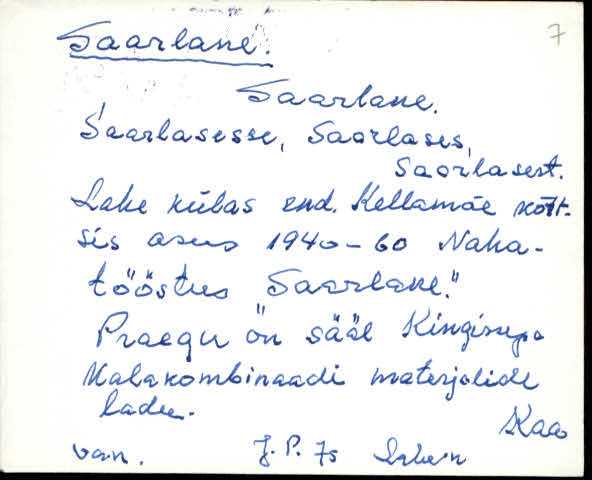 7
Saarlane.
Saarlane.
Saarlasesse, Saarlases,
Saarlasest.
Lahe külas end. Kellamäe kõrt-
sis asus 1940-60 Naha-
tööstus "Saarlane."
Praegu on sääl Kingissepa
Kalakombinaadi materjalide
ladu.
Kaa
van. J. P. 75